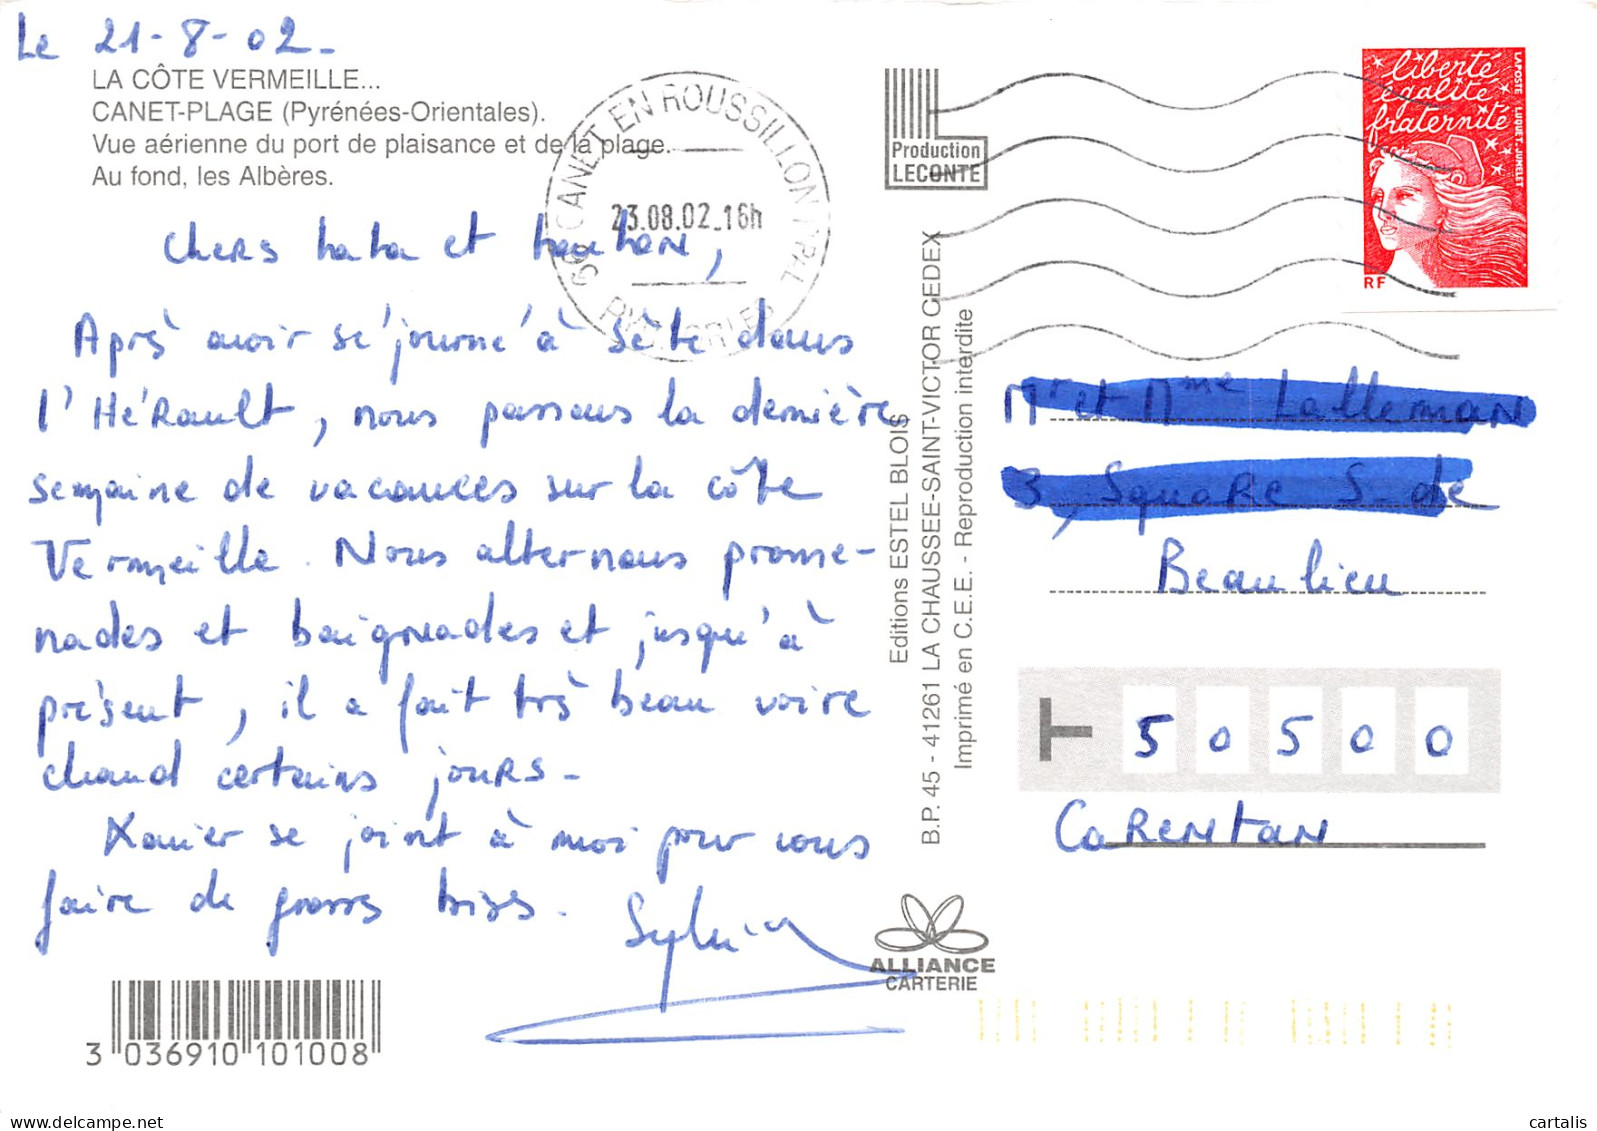 Le 21-8-02-
LA CÔTE VERMEILLE...
CANET-PLAGE (Pyrénées-Orientales).
Vue aérienne du port de plaisance et de la plage.
Au fond, les Albères.
Chers tata et tonton,
Après avoir séjourné à Sète dans
l'Hérault, nous passons la dernière
semaine de vacances sur la côte
Vermeille. Nous alternons prome-
nades et baignades et jusqu'à
présent, il a fait très beau voire
chaud certains jours-
Xavier se joint à moi pour vous
faire de grosses bises.
Sylvie
3 036910 101008
66 CANET EN ROUSSILLON PPAL
23.08.02_16h
Production
LECONTE
Editions ESTEL BLOIS
B.P. 45 - 41261 LA CHAUSSEE-SAINT-VICTOR CEDEX
Imprimé en C.E.E. - Reproduction interdite
ALLIANCE
CARTERIE
liberté
égalité
fraternité
LAPOSTE LUQUET.JUMELET
RF
Mr et Mme Lalleman
3, Square S. de
Beaulieu
50500
Carentan
cartalis